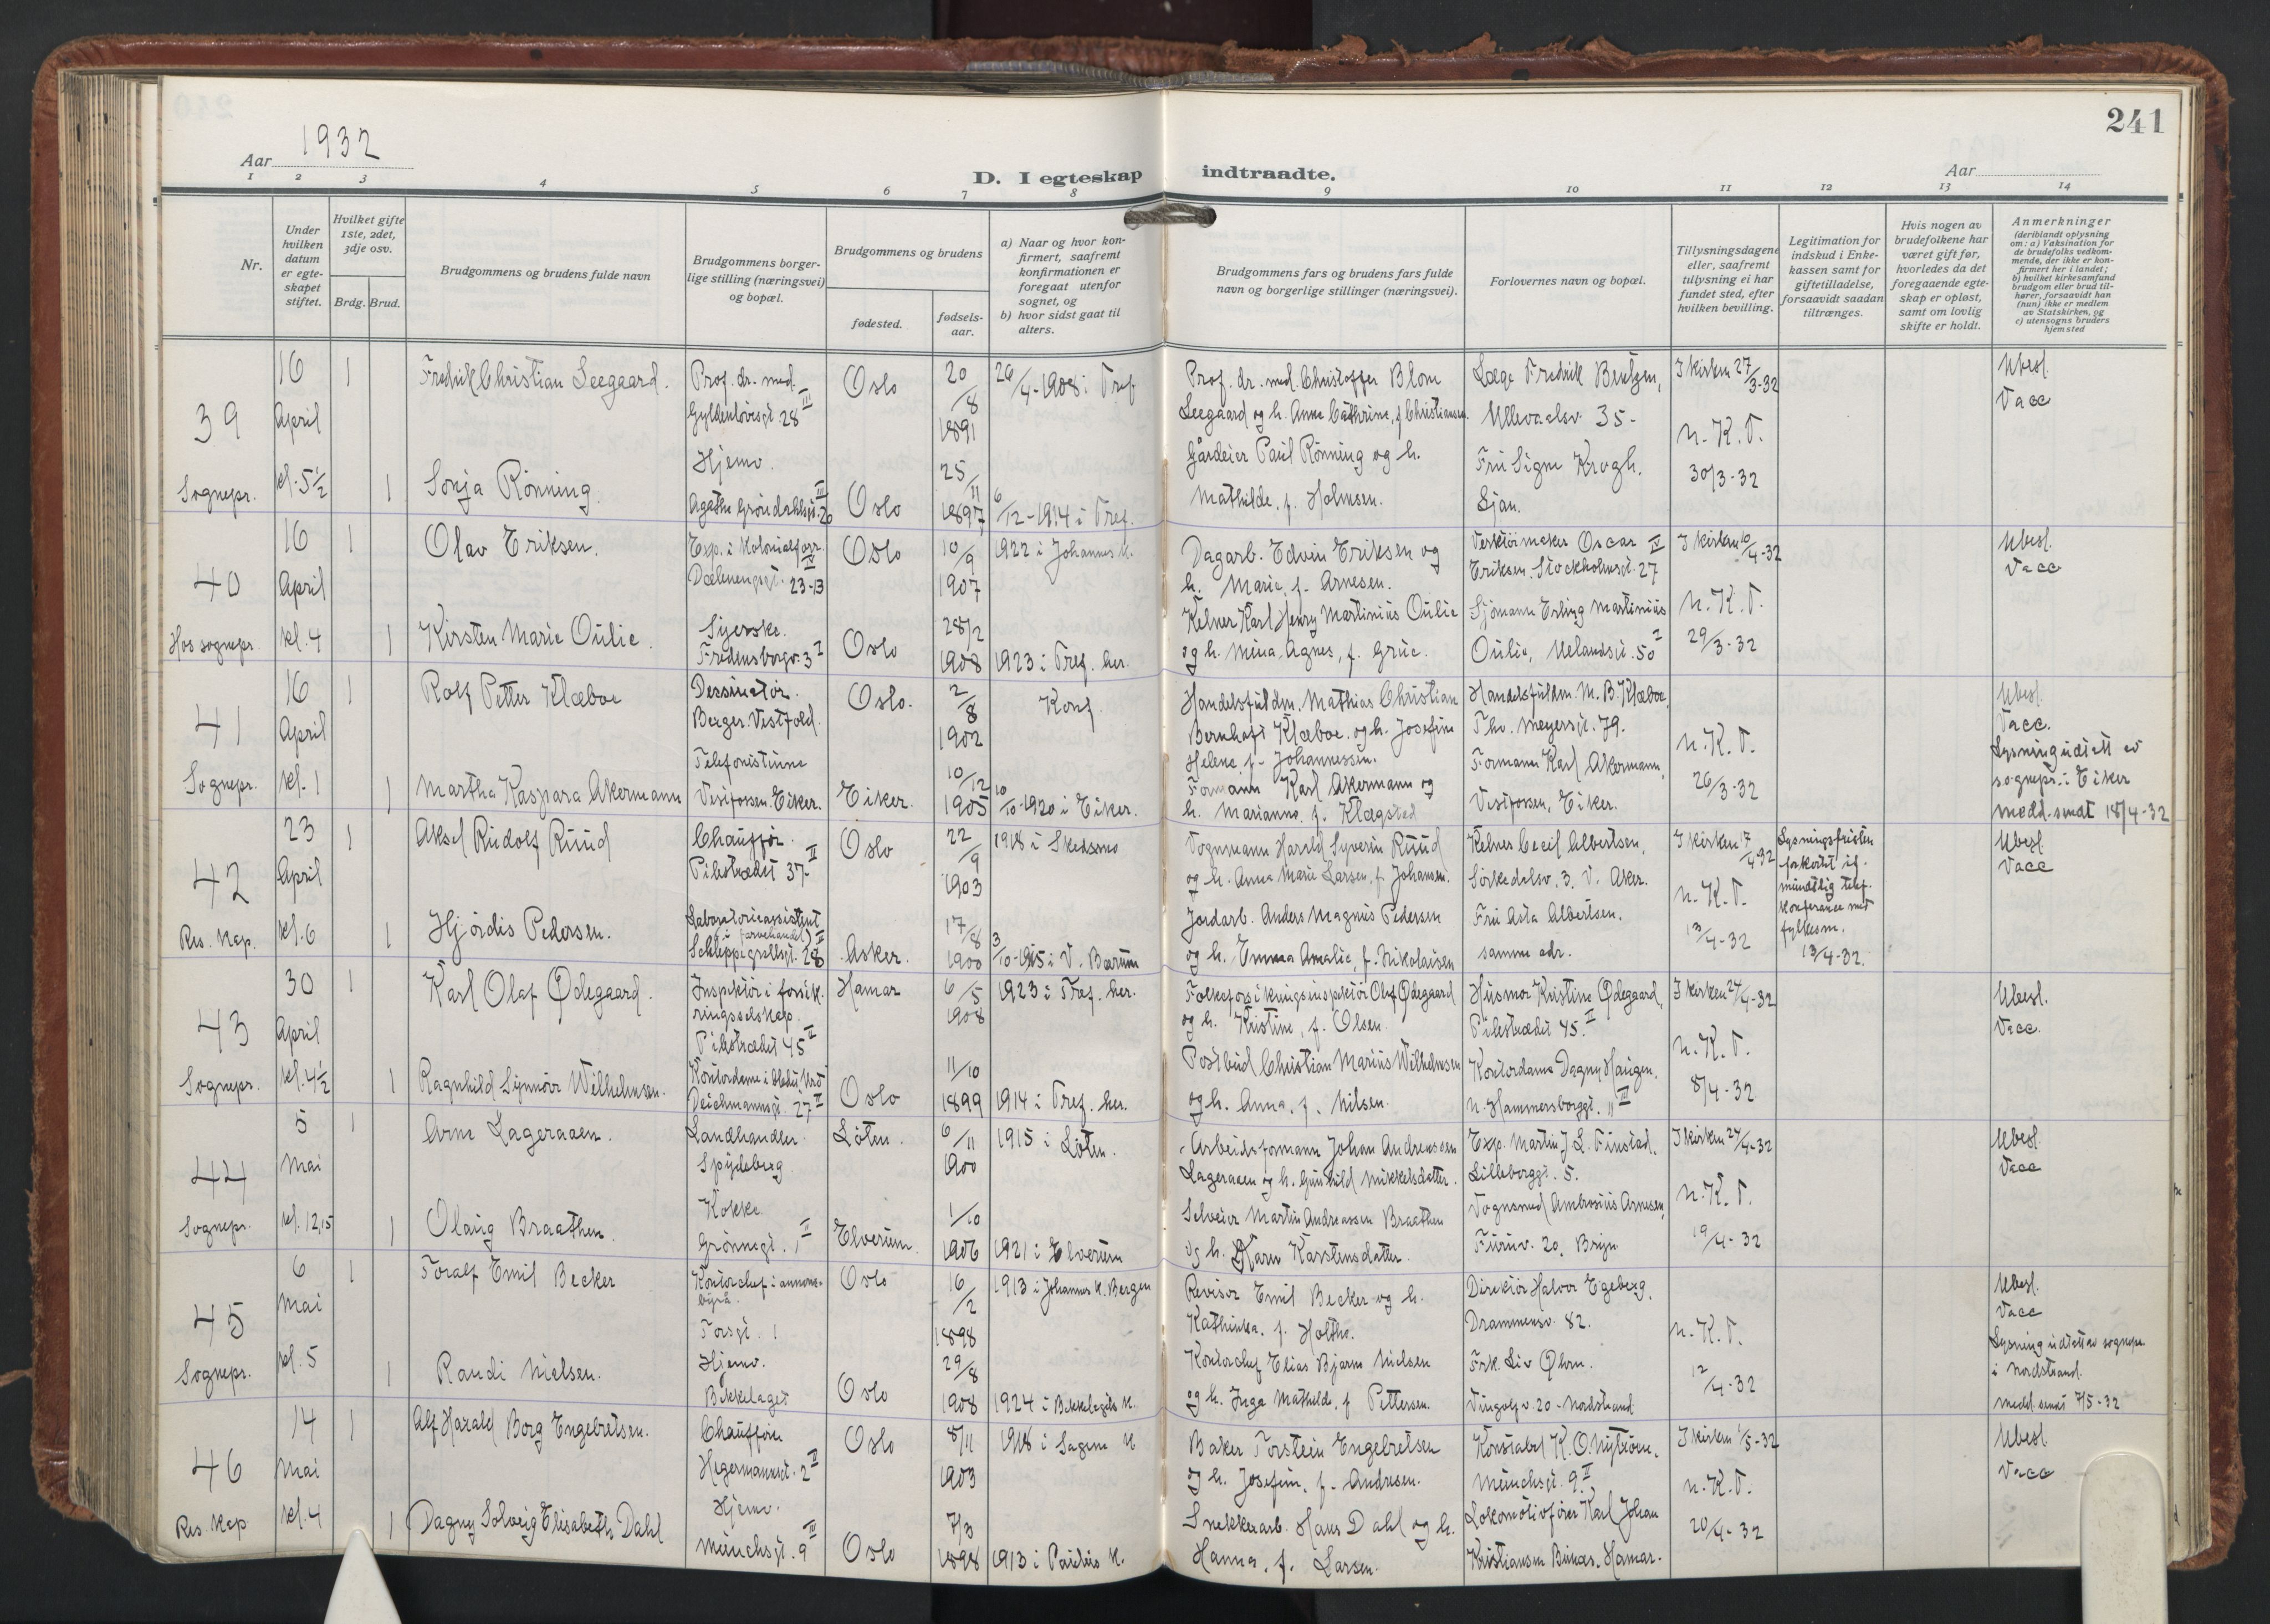 241
Aar 1932
D. I egteskap indtraadte.
Aar
1 2 3 4 5 6 7 8 9 10 11 12 13 14
Nr.
Under hvilken datum er egteskapet stiftet.
Hvilket gifte 1ste, 2det, 3dje osv.
Brdg. Brud.
Brudgommens og brudens fulde navn
Brudgommens borgerlige stilling (næringsvei) og bopæl.
Brudgommens og brudens
fødested.
fødselsaar.
a) Naar og hvor konfirmert, saafremt konfirmationen er foregaat utenfor sognet, og
b) hvor sidst gaat til alters.
Brudgommens fars og brudens fars fulde navn og borgerlige stillinger (næringsvei).
Forlovernes navn og bopæl.
Tillysningsdagene eller, saafremt tillysning ei har fundet sted, efter hvilken bevilling.
Legitimation for indskud i Enkekassen samt for giftetilladelse, forsaavidt saadan tiltrænges.
Hvis nogen av brudefolkene har været gift før, hvorledes da det foregaaende egteskap er opløst, samt om lovlig skifte er holdt.
Anmerkninger (deriblandt oplysning om: a) Vaksination for de brudefolks vedkommende, der ikke er konfirmert her i landet; b) hvilket kirkesamfund brudgom eller brud tilhører, forsaavidt han (hun) ikke er medlem av Statskirken, og c) utensogns bruders hjemsted
39 Sognepr.
16 April kl. 5½
1
Fredrik Christian Leegaard.
Prof. dr. med. Gyldenløvesgt. 28 III
Oslo
20/8 1891
26/4-1908 i Tref.
Prof. dr. med. Christoffer Blom Leegaard og h. Anna Cathrine, f. Christiansen.
Læge Fredrik Bentzen, Ullevaalsv. 35-
I kirken 27/3-32
n. K. T. 30/3-32
Ubesl. Vacc
1
Sonja Rønning.
Hjemv. Agathe Grøndahlsgt. 26 III
Oslo
25/11 1897
6/12-1914 i Tref.
Gårdeier Paul Rønning og h. Mathilde, f. Holmsen.
Fru Signe Krogh. Ljan.
40 Hos sognepr.
16 April kl. 4
1
Olav Eriksen.
Exp. i Kolonialforr. Dælenenggt. 23-13 IV
Oslo
10/9 1907
1922 i Johannes K.
Dagarb. Edvin Eriksen og h. Marie, f. Arnesen.
Verktøimaker Oscar Eriksen. Stockholmsgt. 27 IV
I kirken 10/4-32
n. K. T. 29/3-32
Ubesl. Vacc
1
Kirsten Marie Oulie.
Syerske. Fredensborgv. 3 I
Oslo
28/2 1908
1923 i Tref. her.
Kelner Karl Henry Martinius Oulie og h. Mina Agnes, f. Grue.
Sjømann Erling Martinius Oulie, Uelandsgt. 50 I
41 Sognepr.
16 April kl. 1
1
Rolf Petter Klæboe
Dessinatør. Berger. Vestfold.
Oslo.
2/8 1902
Konf.
Handelsfuldm. Mathias Christian Bernhoft Klæboe. og h. Josefine Helene, f. Johannessen.
Handelsfuldm. M. B. Klæboe, Thv. Meyersgt. 79.
n. K. T. 26/3-32
Ubesl. Vacc. Lysning utstedt av sognepr. i Eiker medd. sendt 18/4-32
1
Martha Kaspara Akermann
Telefonistinne Vestfossen. Eiker.
Eiker.
10/12 1905
10/10-1920 i Eiker.
Formann Karl Akermann og h. Marianne, f. Klagstad
Formann Karl Akermann, Vestfossen, Eiker.
42 Res. Kap.
23 April kl. 6
1
Aksel Rudolf Ruud
Chauffør. Pilestrædet 37. II
Oslo
22/9 1903
1918 i Skedsmo
Vognmann Harald Syverin Ruud og h. Anna Marie Larsen, f. Johansen.
Kelner Cecil Albertsen, Sørkedalsv. 3. V. Aker.
I kirken 17/4-32
n. K. T. 13/4-32
Lysningsfristen forkortet ifl. muntlig telef. konferanse med fylkesm. 13/4-32.
Ubesl. Vacc
1
Hjørdis Pedersen.
Laboratorieassistent (i farvehandel) Schleppegrellsgt. 28 II
Asker.
17/8 1900
3/10-1915 i V. Bærum
Jordarb. Anders Magnus Pedersen og h. Emma Amalie, f. Nikolaisen
Fru Asta Albertsen. samme adr.
43 Sognepr.
30 April kl. 4½
1
Karl Olaf Ødegaard.
Inspektør i forsikringsselskap. Pilestrædet 45 II
Hamar
6/5 1908
1923 i Tref. her.
Folkeforsikringsinspektør Olaf Ødegaard og h. Kristine, f. Olsen.
Husmor Kristine Ødegaard, Pilestrædet 45. II
I kirken 24/4-32
n. K. T. 8/4-32
Ubesl. Vacc.
1
Ragnhild Synnøve Wilhelmsen.
Kontordame Deichmannsgt. 27 II
Oslo
11/10 1899
1914 i Tref. her.
Postbud Christian Marius Wilhelmsen og h. Anna, f. Nilsen.
Kontordame Dagny Haugen. n. Hammersborggt. 11 III
44 Sognepr.
5 Mai kl. 12,15
1
Arne Lageraaen.
Landhandler. Spydeberg
Løten.
6/11 1900
1915 i Løten.
Arbeidsformann Johan Andreassen Lageraaen og h. Gunhild Mikkelsdatter.
Exp. Martin J. L. Finstad. Lilleborggt. 5.
I kirken 24/4-32
n. K. T. 19/4-32
Ubesl. Vacc
1
Olaug Braathen.
Kokke. Grønnegt. 1 II
Elverum.
1/10 1906
1921 i Elverum
Selveier Martin Andreassen Braathen og h. Karen Karstensdatter.
Vognmand Ambrosius Arnesen, Furuv. 20. Bryn
45 Sognepr.
6 Mai kl. 5
1
Toralf Emil Becker
Kontorchef i annonsebyrå. Torsgt. 1
Oslo
16/2 1898
1913 i Johannes K. Bergen
Revisor Emil Becker og h. Kathinka, f. Holthe.
Direktør Halvor Egeberg, Drammensv. 82.
n. K. T. 12/4-32
Ubesl. Vacc Lysning utstedt av sognepr. i Nordstrand. medd. sendt 7/5-32
1
Randi Nielsen.
Hjemv. Bekkelaget
Oslo
29/8 1908
1924 i Bekkelagets K.
Kontorchef Elias Bjarne Nielsen og h. Inga Mathilde, f. Pettersen.
Frk. Liv Øhrn. Vingolfv. 20 - Nordstrand
46 Res. Kap
14 Mai kl. 4
1
Alf Harald Borg Engebretsen.
Chauffør Hegermannsgt. 2 II
Oslo
8/11 1903
1918 i Sagene K
Baker Torstein Engebretsen og h. Josefine, f. Andresen.
Konstabel K. O. Nystrøm, Münchsgt. 9. II
I kirken 1/5-32
n. K. T. 20/4-32
Ubesl Vacc
1
Dagny Solveig Elisabeth Dahl
Hjemv. Münchsgt. 9 III
Oslo
7/3 1898
1913 i Paulus K.
Snekkerarb. Hans Dahl og h. Hanna, f. Larsen.
Lokomotivfører Karl Johan Kristiansen Hamar.